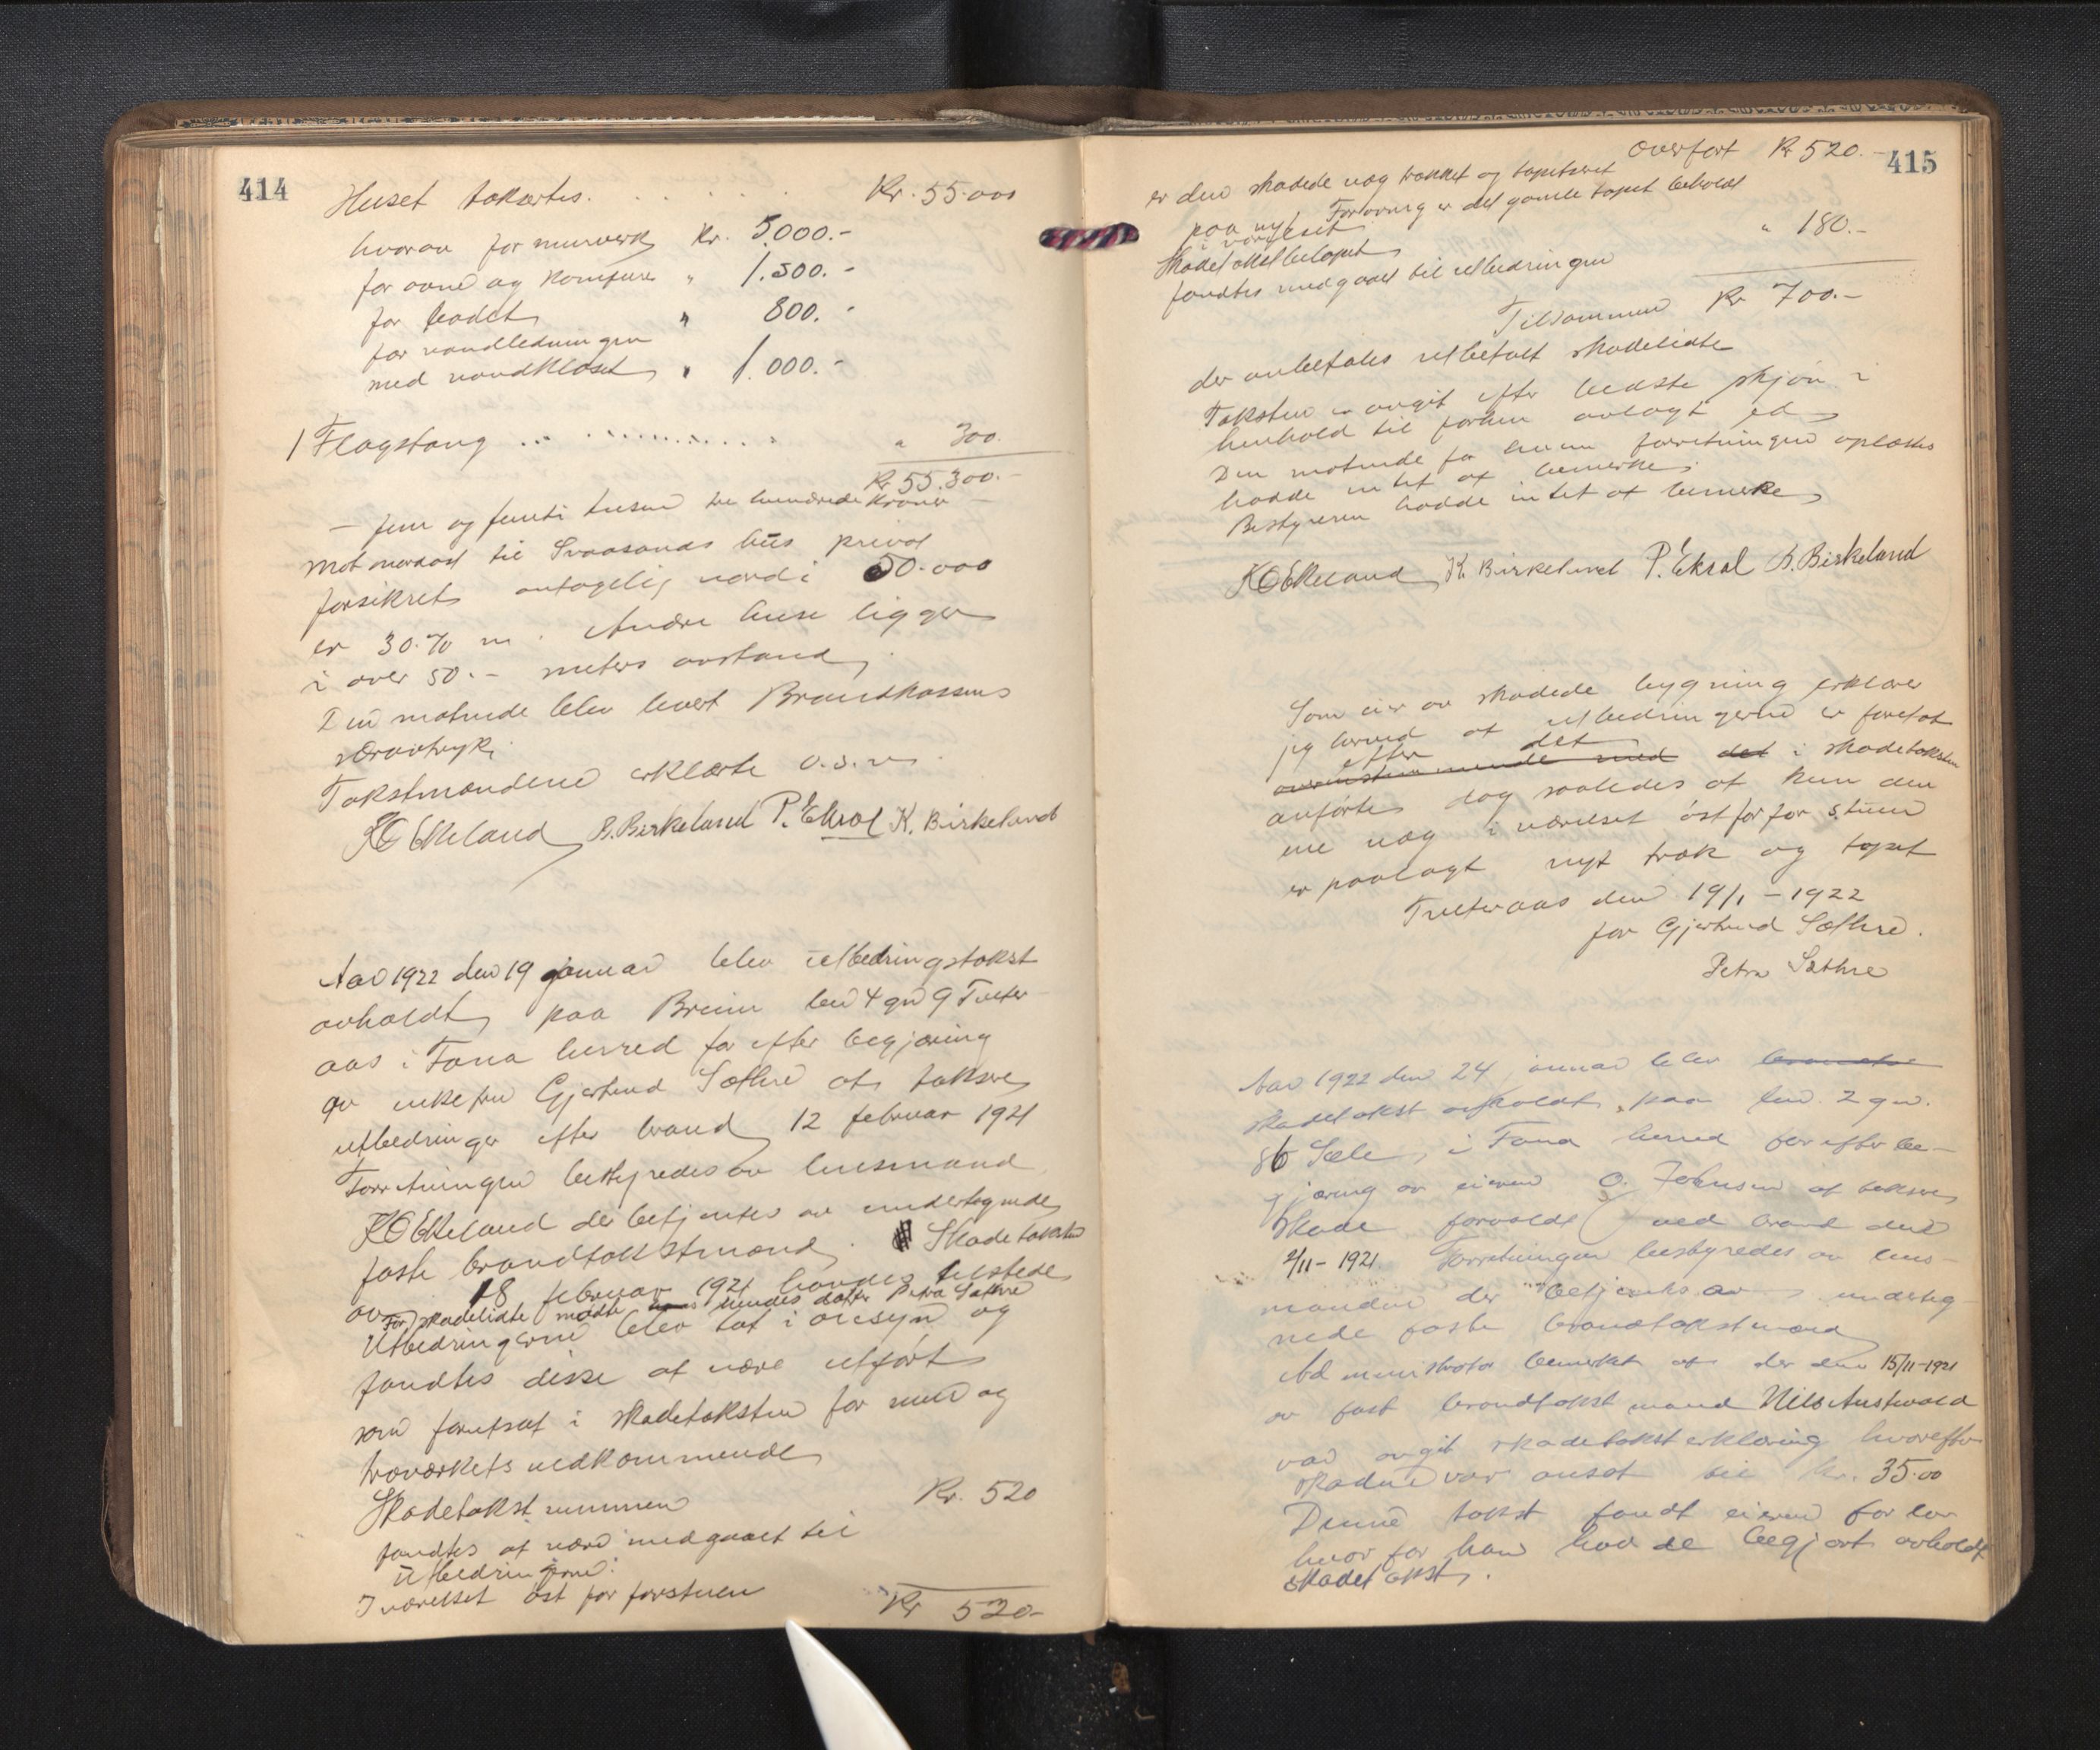 414
Huset takseres. . . . . Kr. 55.000
hvorav for murverk Kr. 5.000.-
for ovne og komfure " 1.500.-
for badet " 800.-
for vandledningen
med vandkloset " 1.000.-
1 Flagstang ... . . . . . . . . . " 300.
Kr 55.300.-
- fem og femti tusen tre hundrede kroner -
Mot nordost til Svaasands hus privat
forsikret antagelig verdi 50.000
er 30.70 m. Andre huse ligger
i over 50.- meters avstand.
Den møtende blev levert Brandkassens
særavtryk.
Takstmændene erklærte o.s.v.
KO Ekeland B. Birkeland P. Ekrol K. Birkeland
Aar 1922 den 19 januar blev utbedringstakst
avholdt paa Breim bno 4 gno 9 Tveter-
aas i Fana herred for efter begjæring
av enkefru Gjertrud Sæthre at taksere
utbedringer efter brand 12 februar 1921
Forretningen bestyredes av lensmand
KO Ekeland der betjentes av undertegnede
faste brandtakstmænd. Skadetaksten
av 18 februar 1921 havdes tilstede
For skadelidte møtte hendes datter Petra Sæthre
Utbedringerne blev tat i øiesyn og
fandtes disse at være utført
som forutsat i skadetaksten for mur og
træverkets vedkommende
Skadetakstsummen Kr. 520
fandtes at være medgaaet til
utbedringerne.
I værelset øst for forstuen
Kr 520-
415
Overført Kr 520.-
er den skadede væg trækket og tapetseret
paa nyt. Forøvrig er det gamle tapet beholdt
i værelset
Skadetakstbeløpet " 180.-
fandtes medgaaet til utbedringen
Tilsammen Kr 700.-
der anbefales utbetalt skadelidte
Taksten er avgit efter bedste skjøn i
henhold til forhen avlagt ed
Den møtende for hvem forretningen oplæstes
hadde intet at bemerke.
Bestyreren hadde intet at bemerke
KO Ekeland K. Birkeland P. Ekrol B. Birkeland
Som eier av skadede bygning erklærer
jeg herved at utbedringerne er foretat
efter det
overensstemmende med det i skadetaksten
anførte dog saaledes at kun den
ene væg i værelset øst for forstuen
er paalagt nyt træk og tapet
Tveteraas den 19/1 - 1922
for Gjertrud Sæthre.
Petra Sæthre
Aar 1922 den 24 januar blev
skadetakst avholdt paa bno. 2 gno.
86 Sæle, i Fana herred for efter be-
gjæring av eieren O. Johnsen at taksere
skade forvoldt ved brand den
2/11 - 1921. Forretningen bestyredes av lens-
manden der betjentes av underteg-
nede faste brandtakstmænd
Administrator bemerket at der den 15/11-1921
av fast brandtakstmand Nils Austevold
var avgit skadetaksterklæring hvorefter
skaden var ansat til kr. 35.00
Denne takst fandt eieren for lav
hvorfor han hadde begjært avholdt
skadetakst.